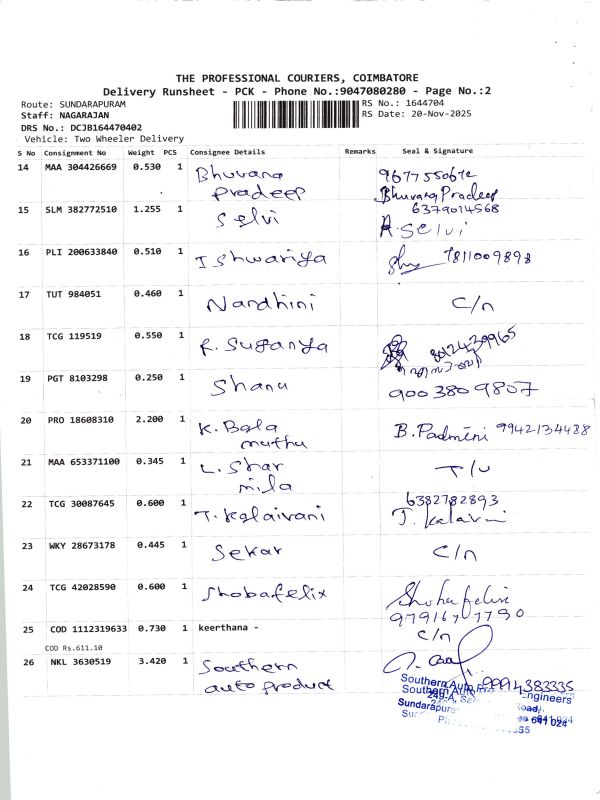 THE PROFESSIONAL COURIERS, COIMBATORE
Delivery Runsheet - PCK - Phone No.:9047080280 - Page No.:2
Route: SUNDARAPURAM
RS No.: 1644704
Staff: NAGARAJAN
RS Date: 20-Nov-2025
DRS No.: DCJB164470402
Vehicle: Two Wheeler Delivery
S No Consignment No Weight PCS Consignee Details Remarks Seal & Signature
14 MAA 304426669 0.530 1 Bhuvana
Pradeep
Bhuvana Pradeep
15 SLM 382772510 1.255 1 Selvi 6379014568
A. Selvi
16 PLI 200633840 0.510 1 Ishwariya 7811009898
17 TUT 984051 0.460 1 Nandhini C/n
18 TCG 119519 0.550 1 R. Suganya 8012439965
19 PGT 8103298 0.250 1 Shanu 9003809807
20 PRO 18608310 2.200 1 K. Bala
muthu
B. Padmini 9942134488
21 MAA 653371100 0.345 1 L. Shar
mila
T/U
22 TCG 30087645 0.600 1 T. Kalaivani 6382782893
23 WKY 28673178 0.445 1 Sekar C/n
24 TCG 42028590 0.600 1 Shobafelix
25 COD 1112319633 0.730 1 keerthana - C/n
COD Rs.611.10
26 NKL 3630519 3.420 1 Southern
auto product
Southern Auto Engineers
249-A,
Sundarapuram Road,
641 024